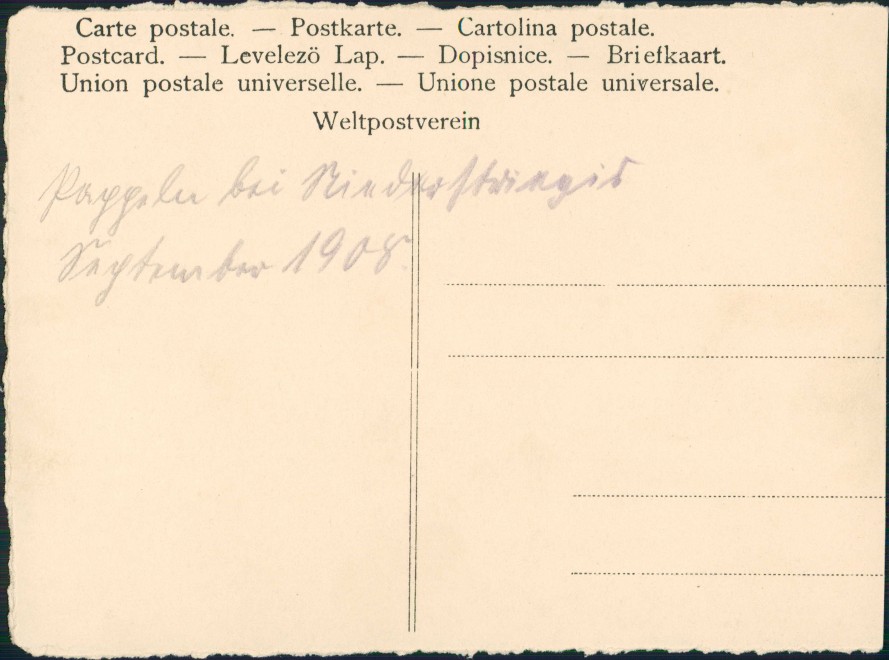 Carte postale. — Postkarte. — Cartolina postale.
Postcard. — Levelezö Lap. — Dopisnice. — Briefkaart.
Union postale universelle. — Unione postale universale.
Weltpostverein
Pappeln bei Niederstriegis
September 1908.